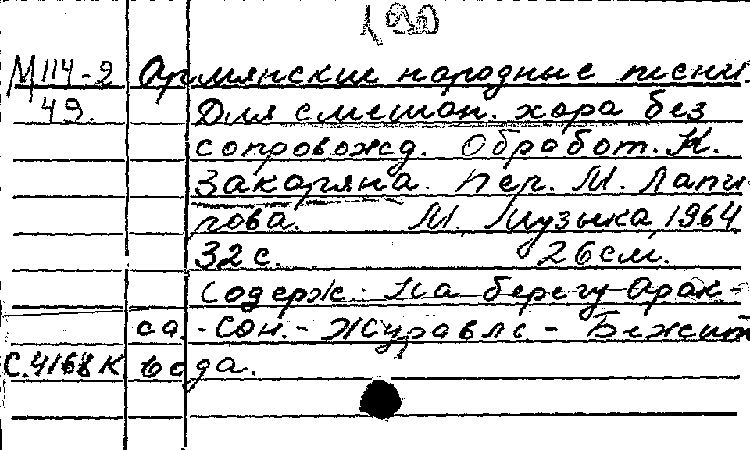 190
М114-2 Армянские народные песни.
49. Для смешан. хора без
сопровожд. Обработ. К.
Закаряна. Пер. М. Лапи-
рова. М. Музыка, 1964
32 с. 26 см.
Содерж.: На берегу Арак-
са. - Сон. - Журавль - Бежит
С.4168к вода.